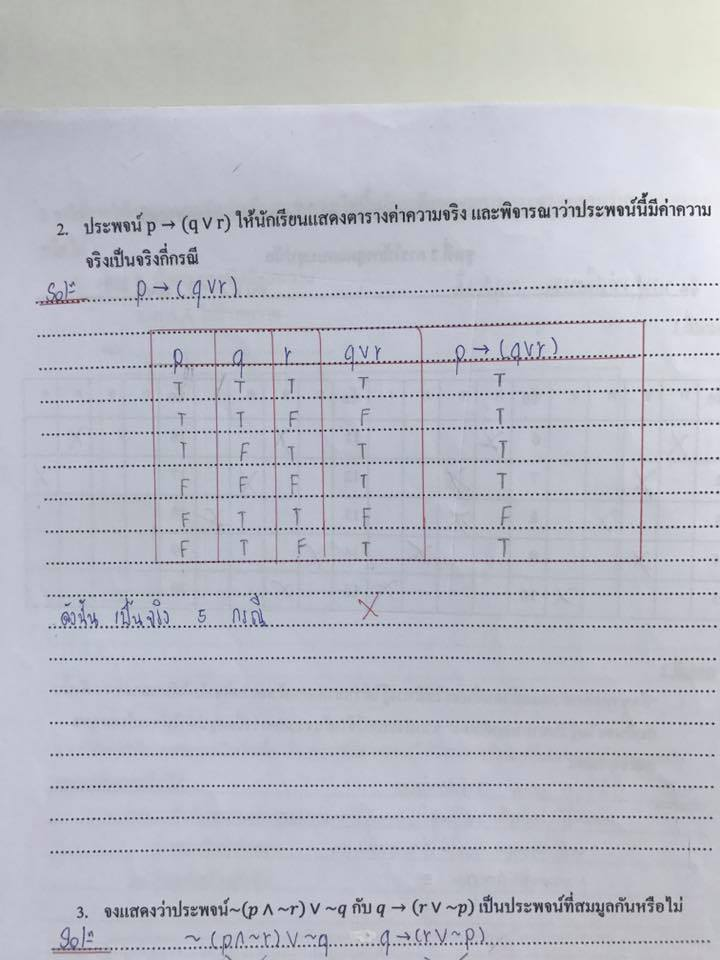 2. ประพจน์ p → (q ∨ r) ให้นักเรียนแสดงตารางค่าความจริง และพิจารณาว่าประพจน์นี้มีค่าความ
จริงเป็นจริงกี่กรณี
Sol= p → ( q ∨ r )
p q r q ∨ r p → (q ∨ r)
T T T T T
T T F F T
T F T T T
F F F T T
F T T F F
F T F T T
ดังนั้น เป็นจริง 5 กรณี X
3. จงแสดงว่าประพจน์~(p ∧ ~r) ∨ ~q กับ q → (r ∨ ~p) เป็นประพจน์ที่สมมูลกันหรือไม่
Sol= ~ (p ∧ ~r) ∨ ~q q → (r ∨ ~p)